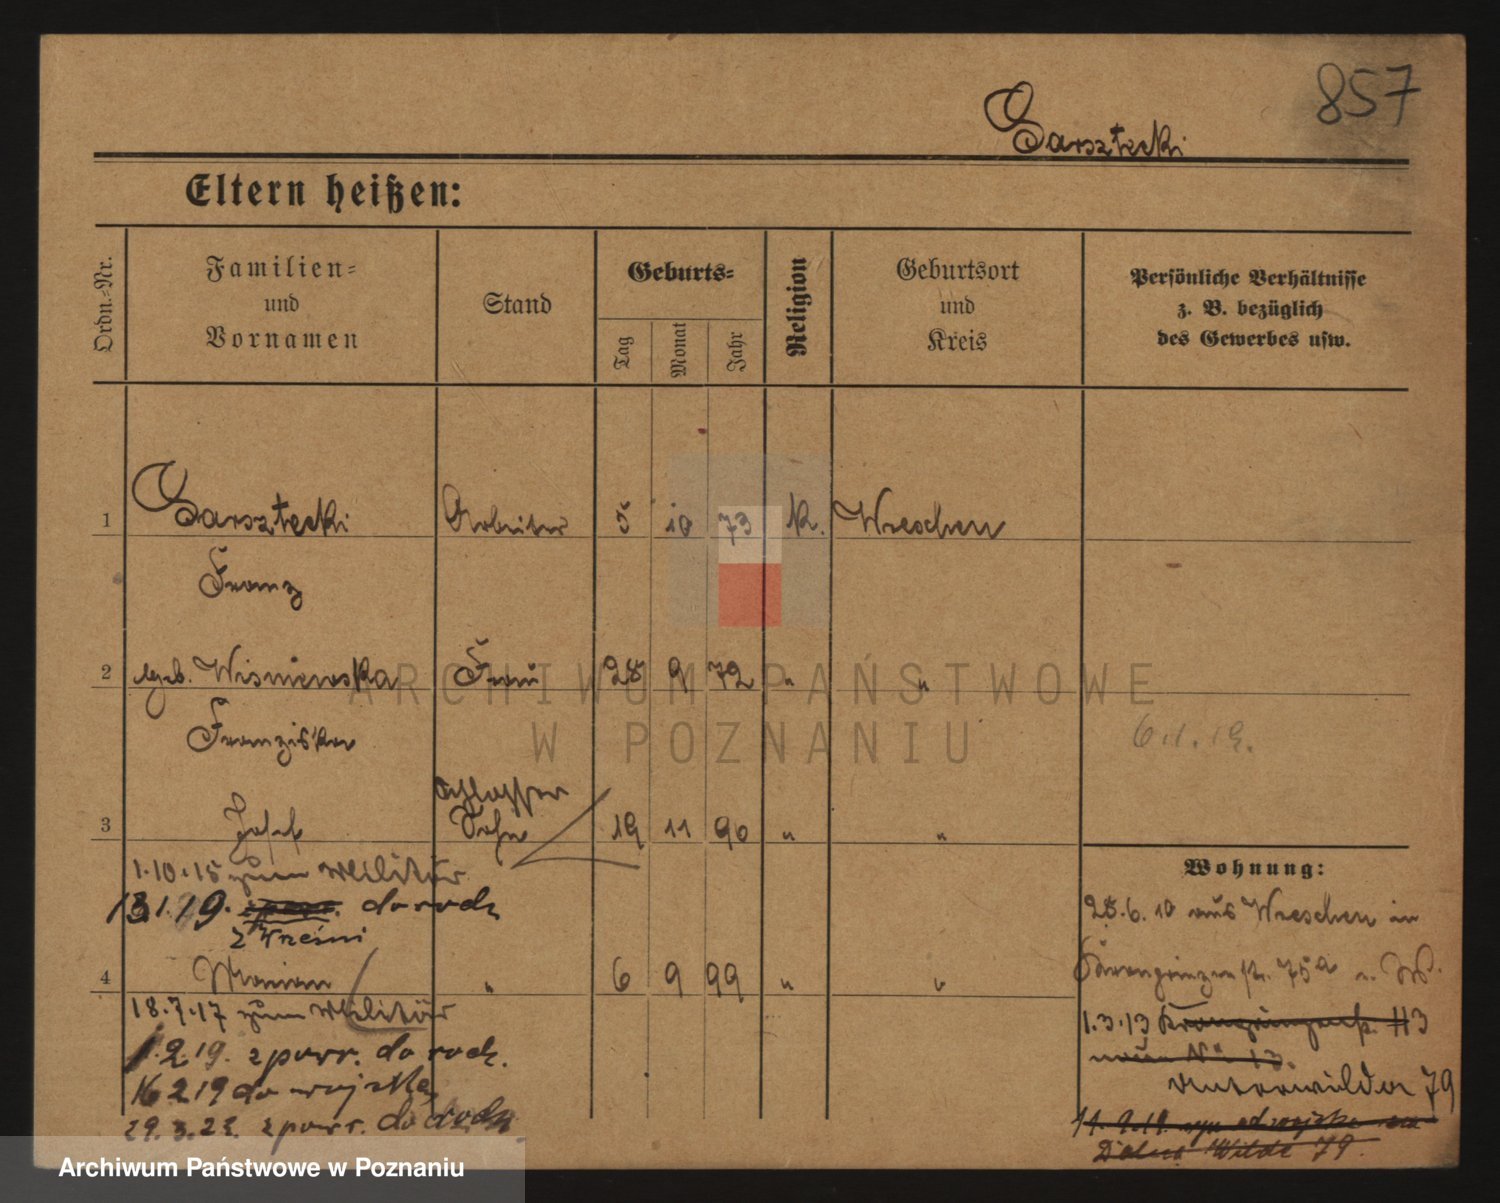 857
Garsztecki
Eltern heißen:
Ordn.-Nr.
Familien-
und
Vornamen
Stand
Geburts-
Tag
Monat
Jahr
Religion
Geburtsort
und
Kreis
Persönliche Verhältnisse
z. B. bezüglich
des Gewerbes usw.
1 Garsztecki Arbeiter 5 10 73 k. Wreschen
Franz
2 geb. Wisniewska Frau 28 9 72 " "
Franziska
6.1.19.
Schlosser
3 Josef Sohn 19 11 90 " "
1.10.15 zum Militär
13.1.19. do rodz.
z Wrześni
4 Marian " 6 9 99 " "
18.7.17 zum Militär
1.2.19. z powr. do rodz.
16 2 19 do wojska
29.3.22. z powr. do rodz.
Wohnung:
28.6.10 aus Wreschen in
Kronprinzenstr. 75a
1.3.13 Kronprinzenstr. 113
Unterwilda 79
Dolna Wilda 79.
ARCHIWUM PAŃSTWOWE
W POZNANIU
Archiwum Państwowe w Poznaniu